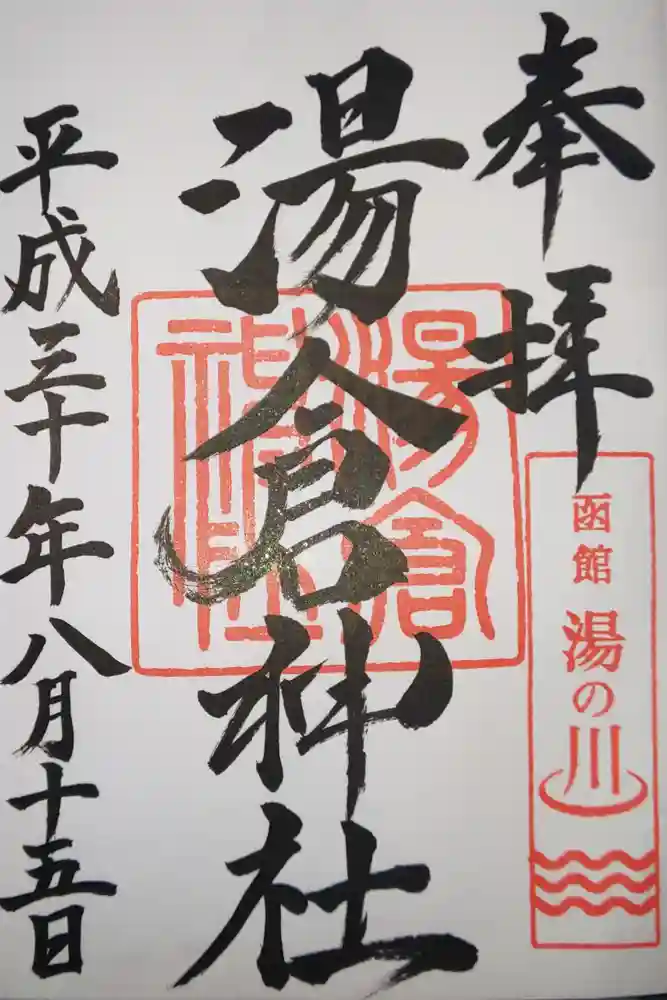 奉拝
函館
湯の川
湯倉神社
湯倉神社
平成三十年八月十五日